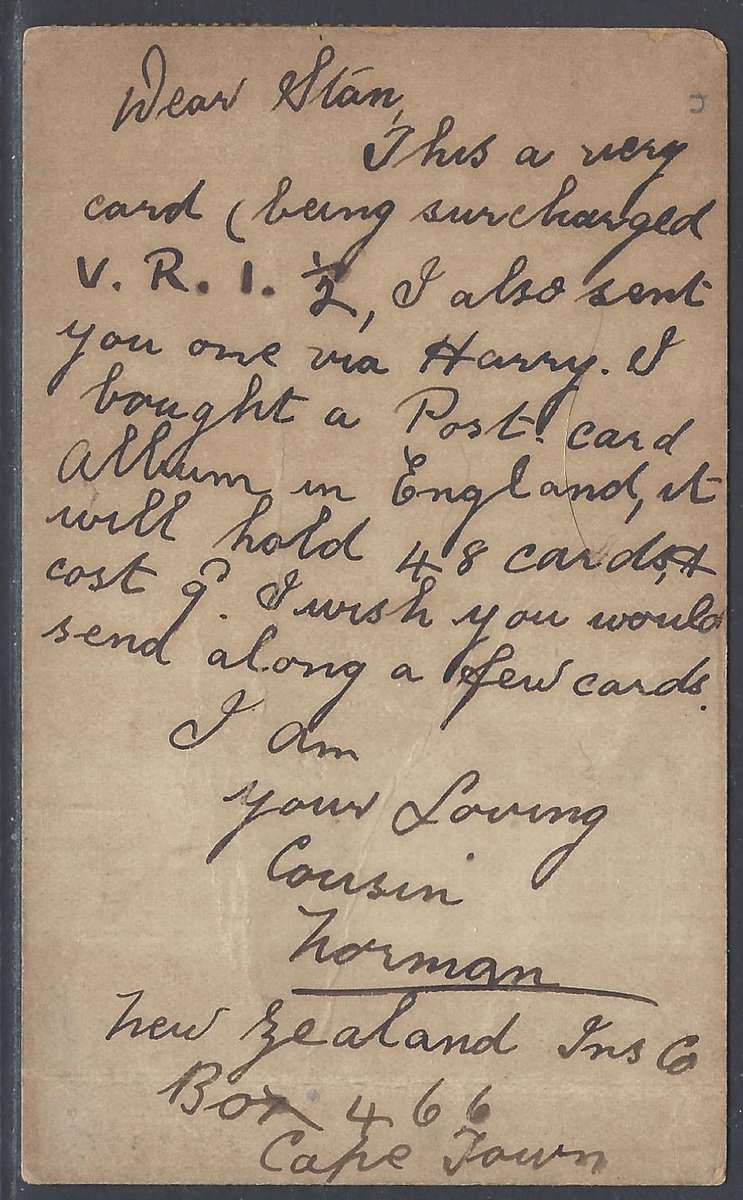 Dear Stan,
This a very
card (being surcharged
V. R. I. ½, I also sent
you one via Harry. I
bought a Post. card
Album in England, it
will hold 48 cards, &
cost 9ᵈ. I wish you would
send along a few cards.
I am
your Loving
Cousin
Norman
New Zealand Ins Co
Box 466
Cape Town